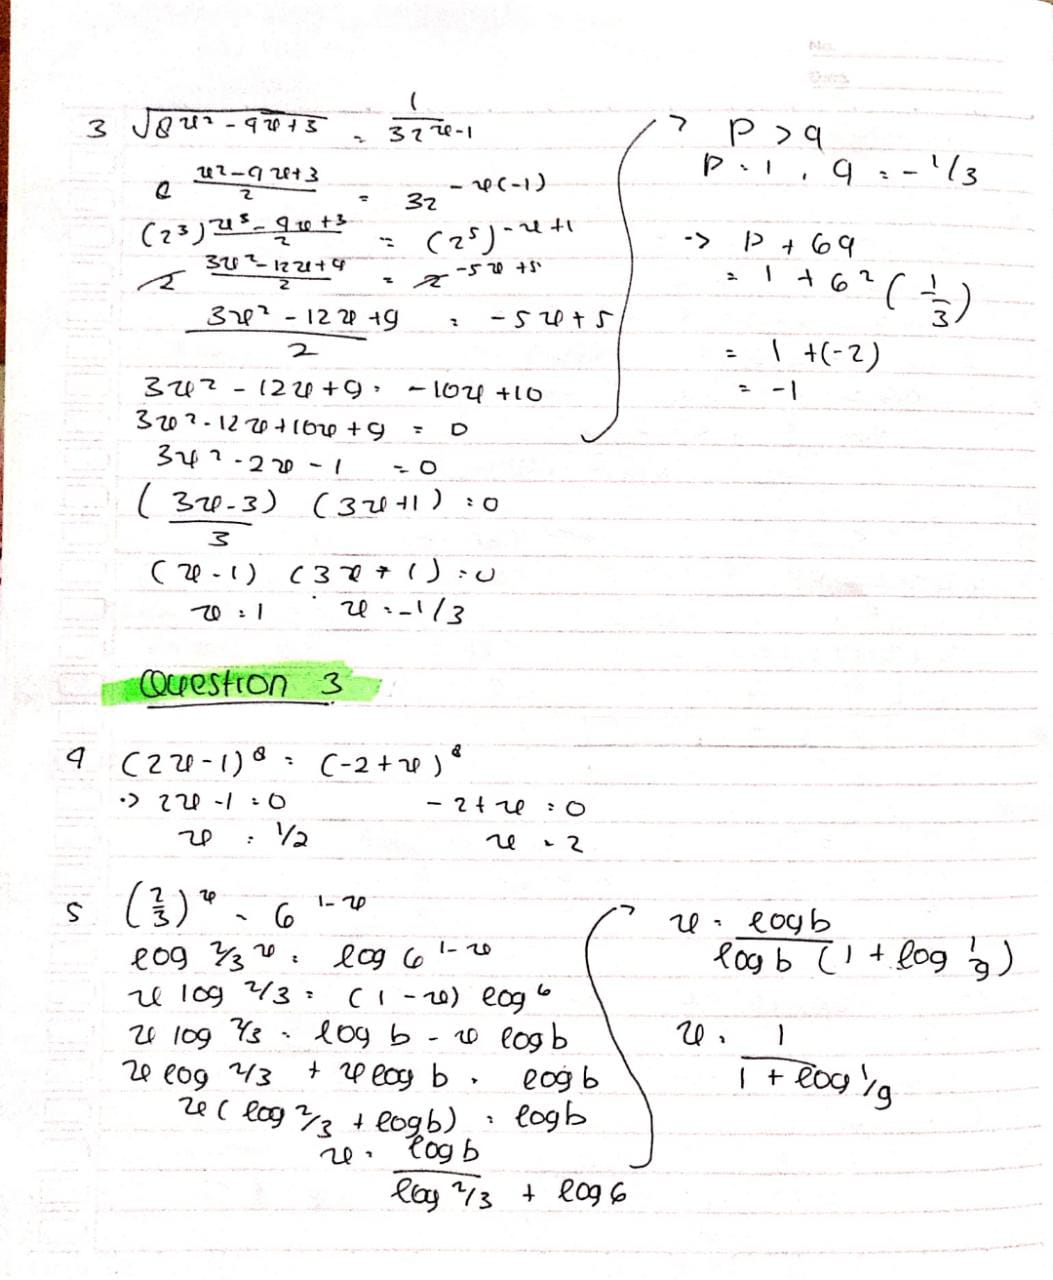 No.
Date
3 √8^(x² - 9x + 3) = 1/32^(x-1)
8^((x² - 9x + 3)/2) = 32^(-x(-1))
(2³)^((x² - 9x + 3)/2) = (2⁵)^(-x+1)
2^((3x² - 12x + 9)/2) = 2^(-5x + 5)
(3x² - 12x + 9)/2 = -5x + 5
3x² - 12x + 9 = -10x + 10
3x² - 12x + 10x + 9 = 0
3x² - 2x - 1 = 0
(3x - 3)/3 (3x + 1) = 0
(x - 1) (3x + 1) = 0
x = 1 x = -1/3
→ p > q
p = 1, q = -1/3
-> p + 6q
= 1 + 6² (1/3)
= 1 + (-2)
= -1
Question 3
4 (2x - 1)⁸ = (-2 + x)⁸
-> 2x - 1 = 0 -2 + x = 0
x = 1/2 x = 2
5 (2/3)^x = 6^(1-x)
log 2/3^x = log 6^(1-x)
x log 2/3 = (1 - x) log 6
x log 2/3 = log 6 - x log 6
x log 2/3 + x log 6 = log 6
x (log 2/3 + log 6) = log 6
x = log 6 / (log 2/3 + log 6)
x = log 6 / (log 6 (1 + log 1/9))
x = 1 / (1 + log 1/9)